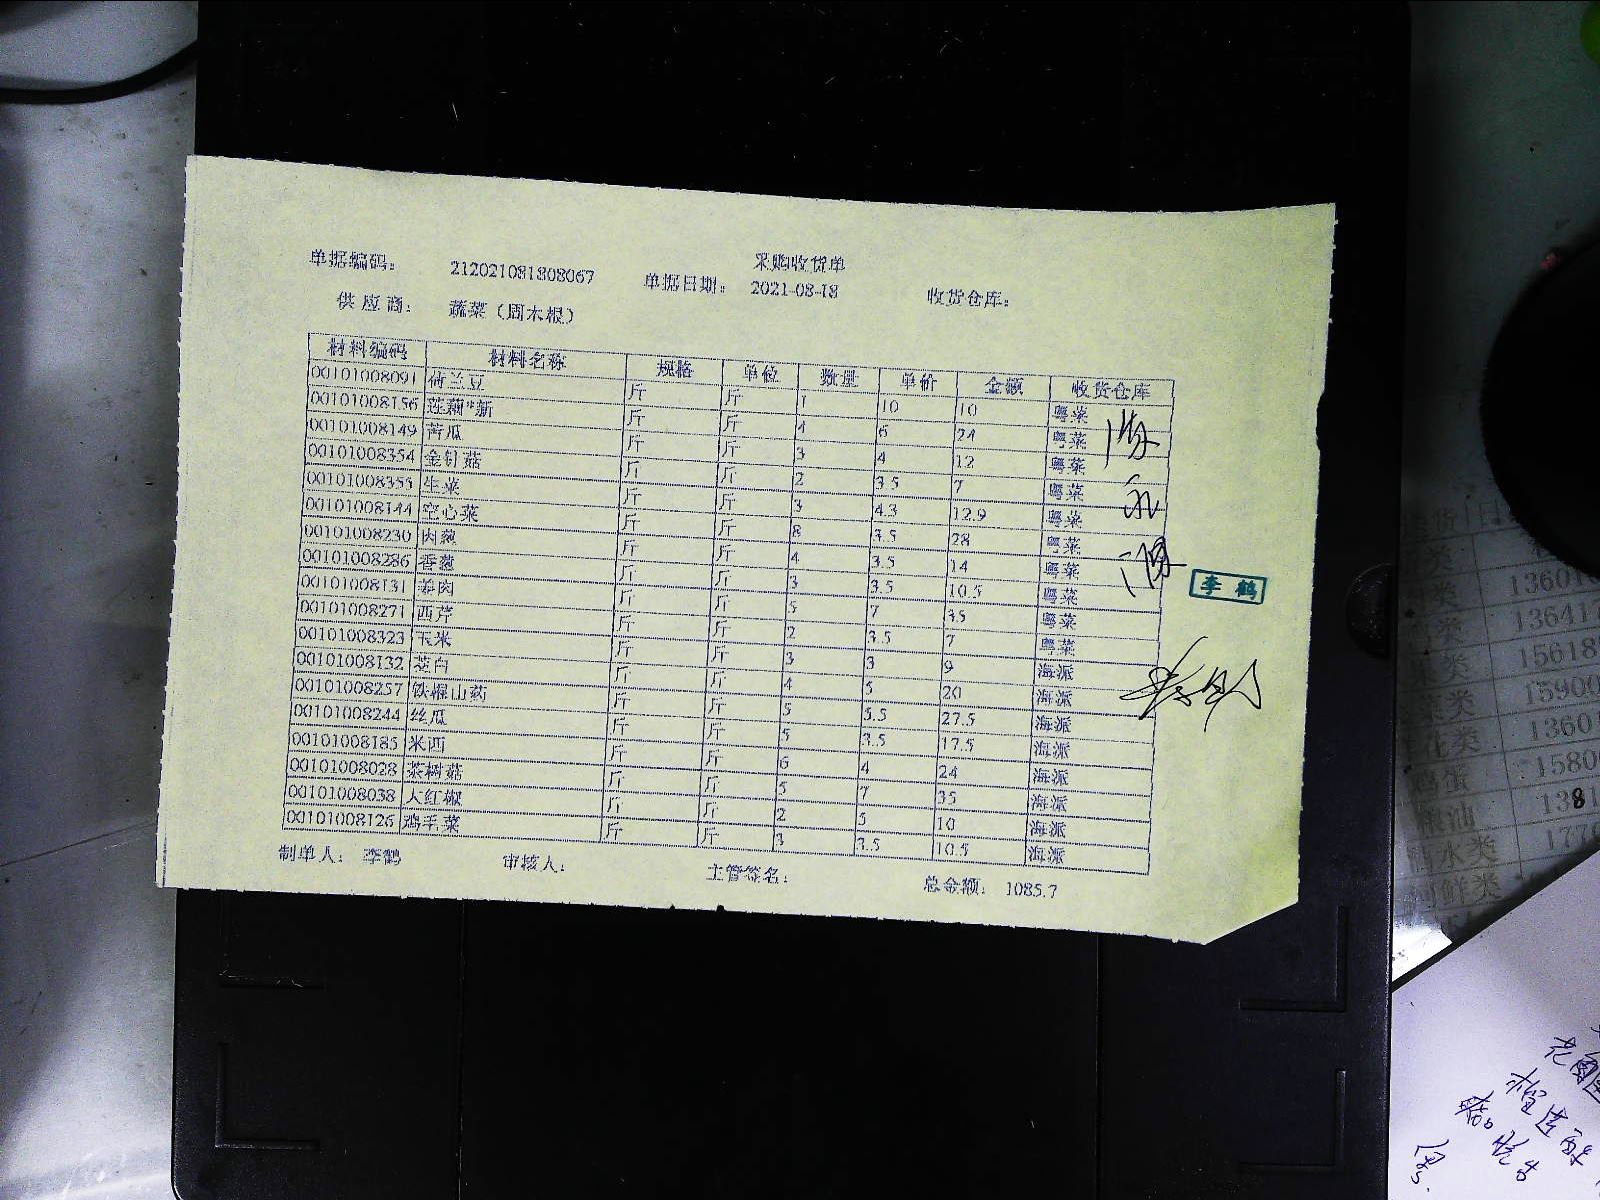 采购收货单
单据编码: 212021081808067 单据日期: 2021-08-18 收货仓库:
供应商: 蔬菜（周木根）
材料编码 材料名称 规格 单位 数量 单价 金额 收货仓库
00101008091 荷兰豆 斤 斤 1 10 10 粤菜
00101008156 莲藕*新 斤 斤 4 6 24 粤菜
00101008149 苦瓜 斤 斤 3 4 12 粤菜
00101008354 金针菇 斤 斤 2 3.5 7 粤菜
00101008355 生菜 斤 斤 3 4.3 12.9 粤菜
00101008144 空心菜 斤 斤 8 3.5 28 粤菜
00101008230 肉葱 斤 斤 4 3.5 14 粤菜
00101008286 香葱 斤 斤 3 3.5 10.5 粤菜
00101008131 姜肉 斤 斤 5 7 35 粤菜
00101008271 西芹 斤 斤 2 3.5 7 粤菜
00101008323 玉米 斤 斤 3 3 9 海派
00101008132 茭白 斤 斤 4 5 20 海派
00101008257 铁棍山药 斤 斤 5 5.5 27.5 海派
00101008244 丝瓜 斤 斤 5 3.5 17.5 海派
00101008185 米西 斤 斤 6 4 24 海派
00101008028 茶树菇 斤 斤 5 7 35 海派
00101008038 大红椒 斤 斤 2 5 10 海派
00101008126 鸡毛菜 斤 斤 3 3.5 10.5 海派
李鹤
制单人: 李鹤 审核人: 主管签名: 总金额: 1085.7